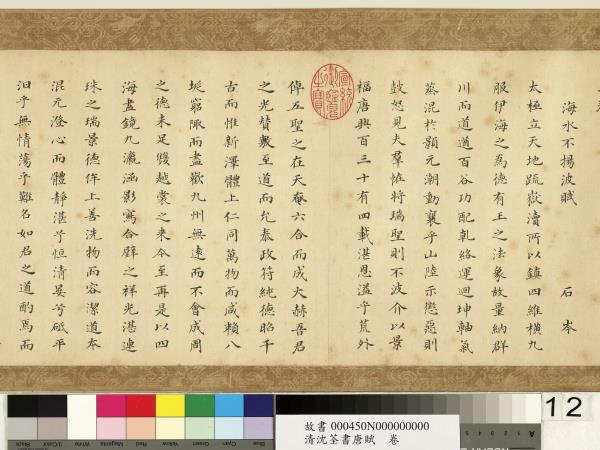 海水不揚波賦
石岑
太極立天地疏嶽瀆所以鎮四維橫九
服伊海之為德有王之法象故量納群
川而道遒百谷功配乾絡運迴坤軸氣
蒸混於顥元潮動襄乎山陸示懲惡則
鼓怒見夫羣恠將瑞聖則不波介以景
福唐興百三十有四載湛恩溢乎荒外
倬五聖之在天奄六合而成大赫吾君
之光贊數至道而允泰政符純德昭千
古而惟新澤體上仁同萬物而咸賴八
埏窮陬而盡歡九州無遠而不會成周
之德未足雙越裳之来今至再是以四
海盡鏡九瀛涵影寫合璧之祥光湛連
珠之瑞景德侔上善洗物而容潔道夲
混元澄心而體静湛兮恒清晏兮砥平
汨乎無情蕩乎難名如君之道酌焉而
12
故書 000450N000000000
清沈荃書唐賦 卷
Black
3/Color
White
Magenta
Red
Yellow
Green
Cyan
Blue
A